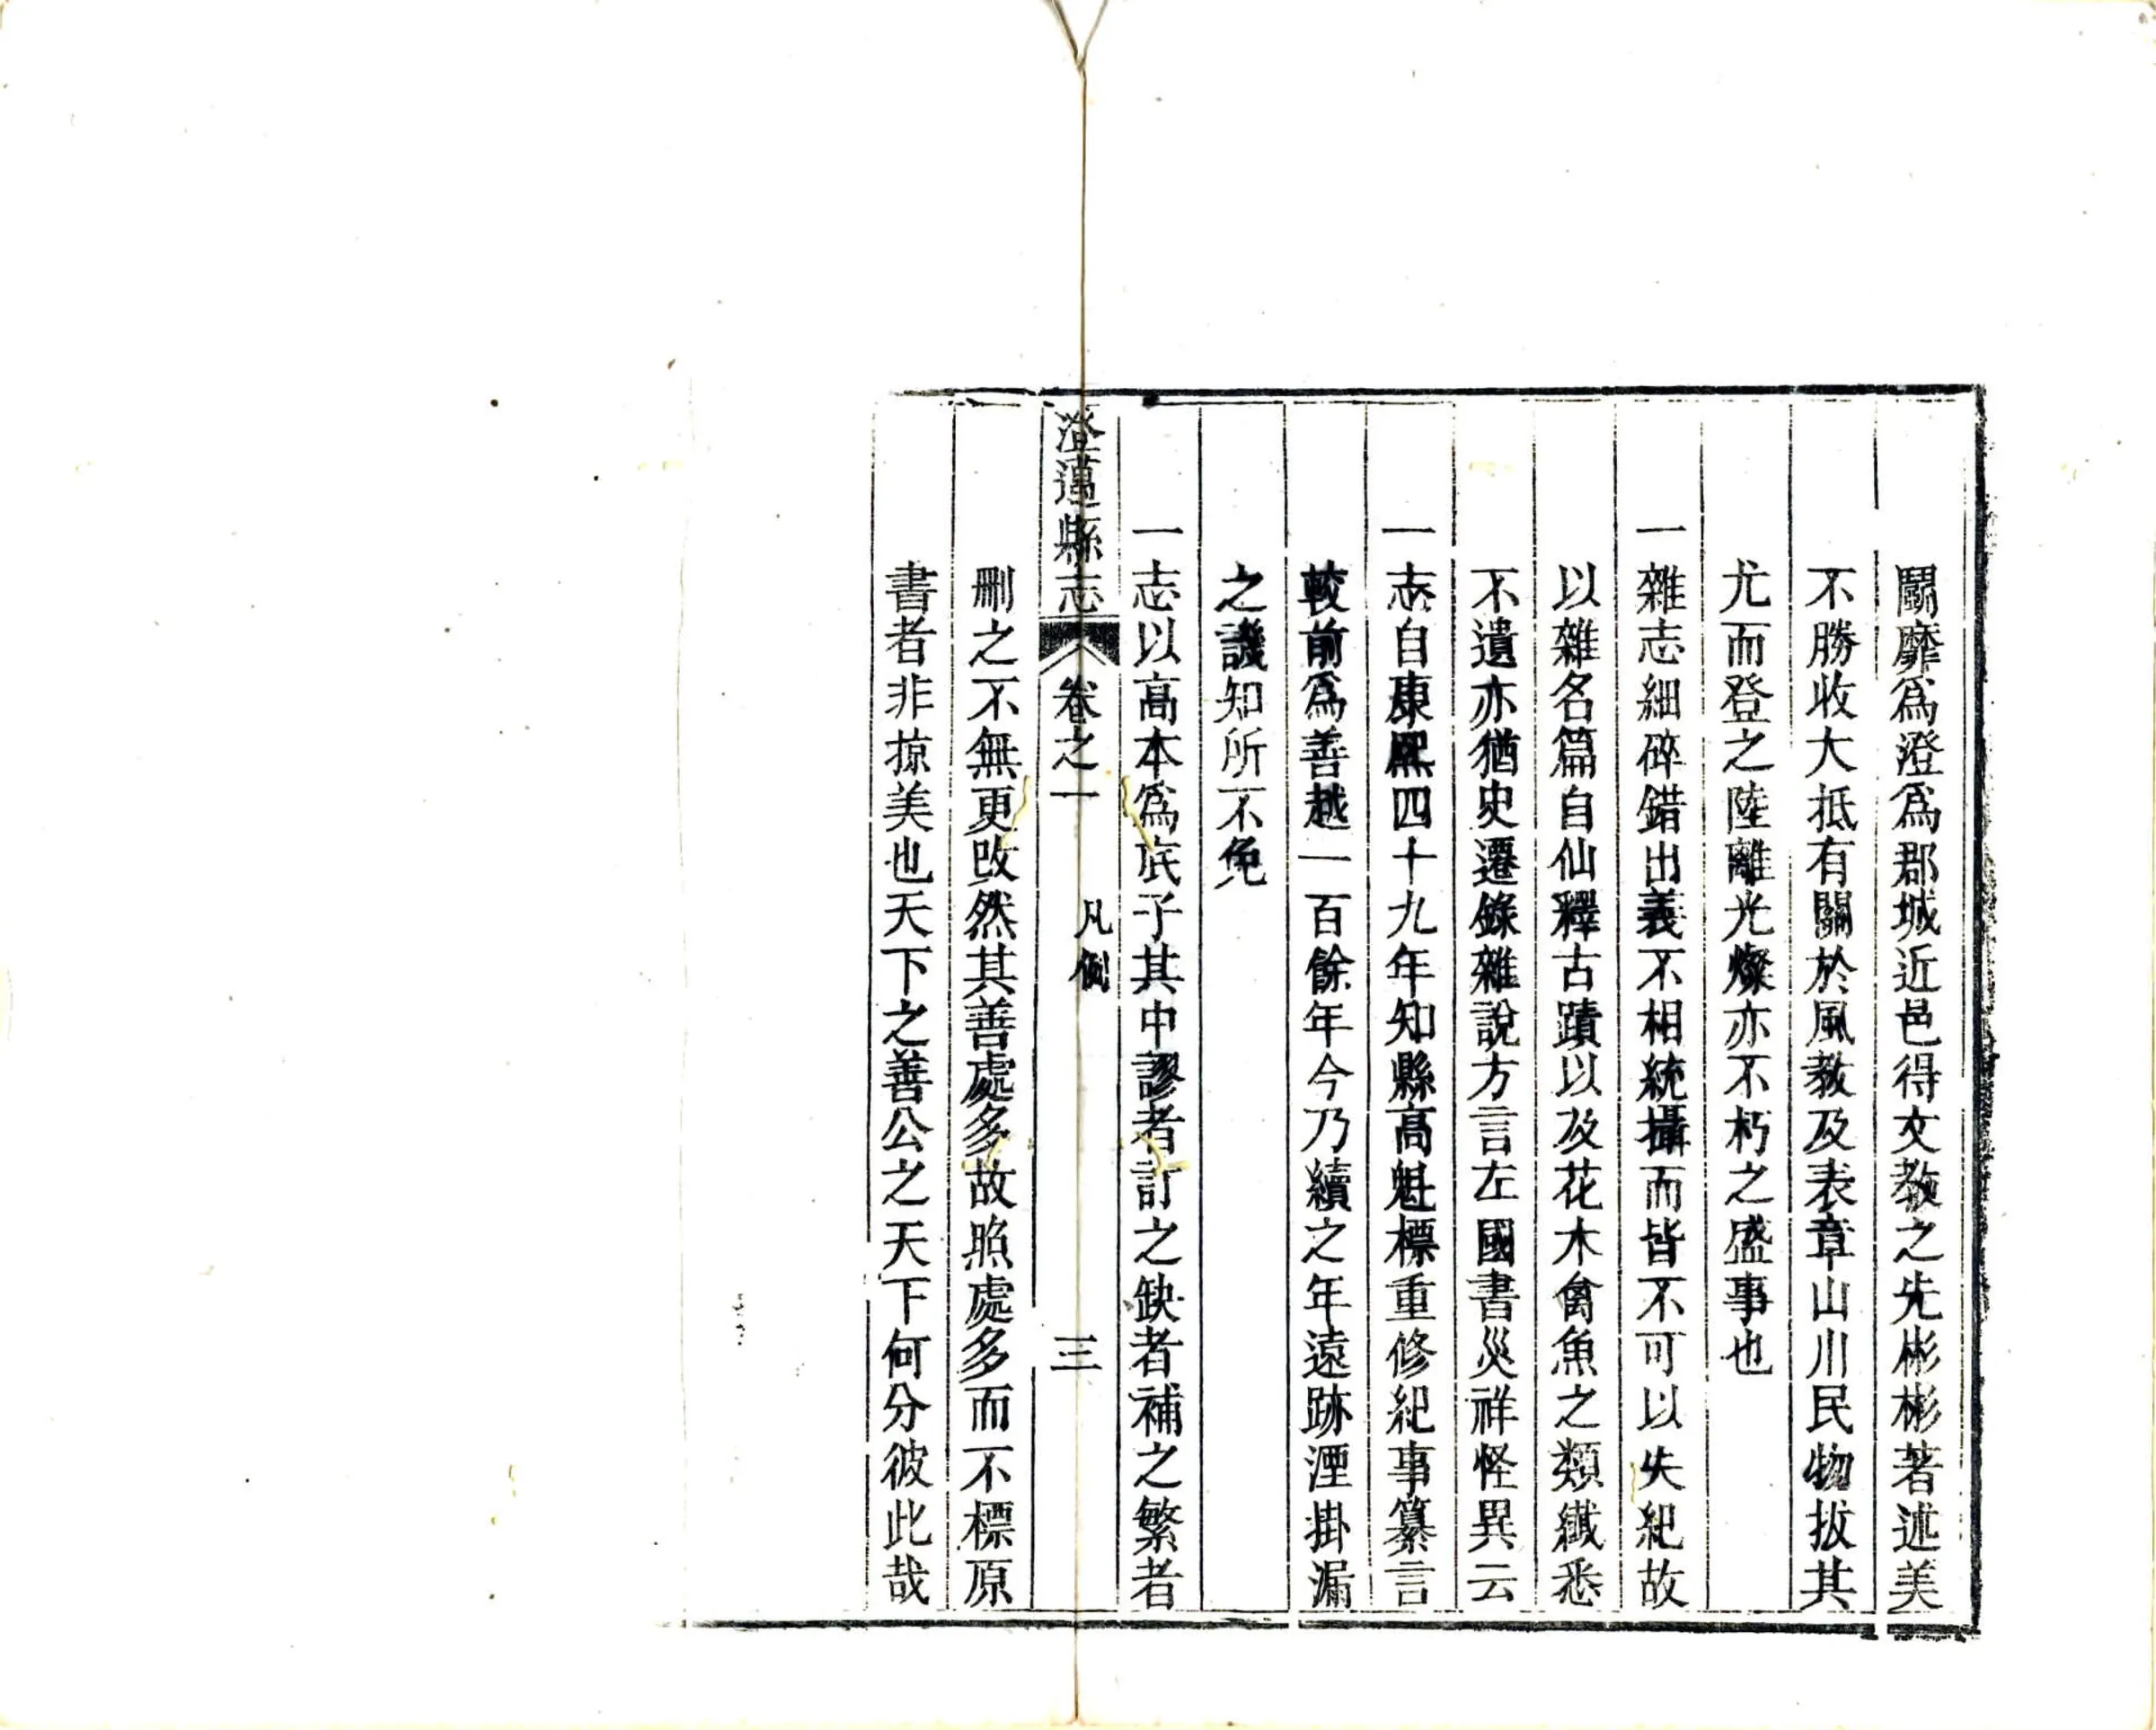 鬭靡爲澄爲郡城近邑得文教之先彬彬著述美
不勝收大抵有關於風教及表章山川民物拔其
尤而登之陸離光燦亦不朽之盛事也
一雜志細碎錯出義不相統攝而皆不可以失紀故
以雜名篇自仙釋古蹟以及花木禽魚之類纖悉
不遺亦猶史遷錄雜說方言左國書災祥怪異云
一志自康熙四十九年知縣高魁標重修紀事纂言
較前爲善越一百餘年今乃續之年遠跡湮掛漏
之譏知所不免
一志以高本爲底子其中謬者訂之缺者補之繁者
澄邁縣志 卷之一 凡例 三
刪之不無更改然其善處多故照處多而不標原
書者非掠美也天下之善公之天下何分彼此哉